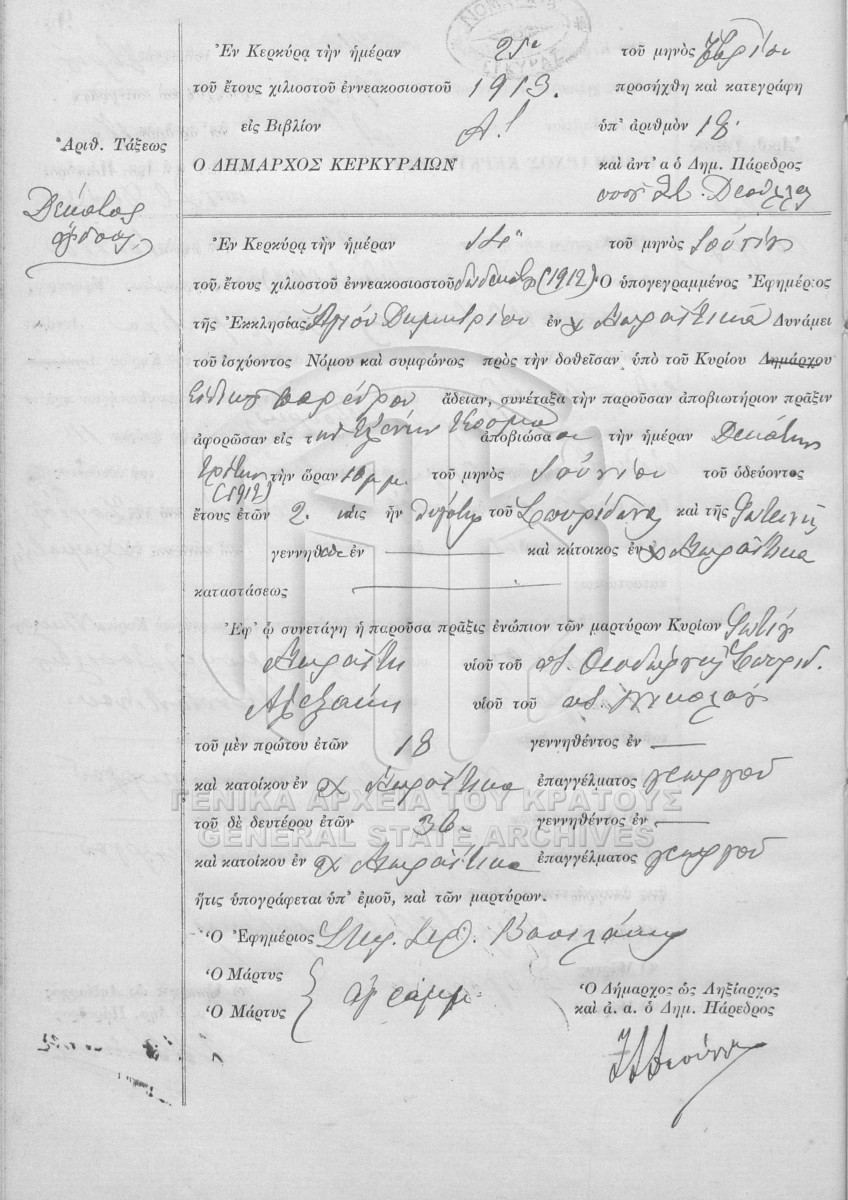 Ἐν Κερκύρᾳ τὴν ἡμέραν 25ην τοῦ μηνὸς
τοῦ ἔτους χιλιοστοῦ ἐννεακοσιοστοῦ 1913. προσήχθη καὶ κατεγράφη
εἰς Βιβλίον Α! ὑπ' ἀριθμὸν 18.
Ἀριθ. Τάξεως
Ο ΔΗΜΑΡΧΟΣ ΚΕΡΚΥΡΑΙΩΝ καὶ ἀντ' α ὁ Δημ. Πάρεδρος
Δέκατος
ὄγδοος
Ἐν Κερκύρᾳ τὴν ἡμέραν 14ην τοῦ μηνὸς Ἰουνίου
τοῦ ἔτους χιλιοστοῦ ἐννεακοσιοστοῦ δωδεκάτου (1912) Ὁ ὑπογεγραμμένος Ἐφημέριος
τῆς Ἐκκλησίας Ἁγίου Δημητρίου ἐν χ Δυνάμει
τοῦ ἰσχύοντος Νόμου καὶ συμφώνως πρὸς τὴν δοθεῖσαν ὑπὸ τοῦ Κυρίου Δημάρχου
Εἰδικοῦ παρέδρου ἄδειαν, συνέταξα τὴν παροῦσαν ἀποβιωτήριον πρᾶξιν
ἀφορῶσαν εἰς τὴν Ἑλένην ἀποβιώσασαν τὴν ἡμέραν Δεκάτην
τρίτην τὴν ὥραν 10 μ.μ. τοῦ μηνὸς Ἰουνίου τοῦ ὁδεύοντος
(1912)
ἔτους ἐτῶν 2. ἥτις ἦν θυγάτηρ τοῦ Σπυρίδωνος καὶ τῆς Φωτεινῆς
γεννηθεῖσα ἐν — καὶ κάτοικος ἐν χ
καταστάσεως —
Ἐφ' ᾧ συνετάγη ἡ παροῦσα πρᾶξις ἐνώπιον τῶν μαρτύρων Κυρίων Φωτίου
υἱοῦ τοῦ π. Θεοδώρου καὶ Σπυρίδ.
υἱοῦ τοῦ π. Νικολάου
τοῦ μὲν πρώτου ἐτῶν 18 γεννηθέντος ἐν —
καὶ κατοίκου ἐν χ ἐπαγγέλματος γεωργοῦ
ΓΕΝΙΚΑ ΑΡΧΕΙΑ ΤΟΥ ΚΡΑΤΟΥΣ
τοῦ δὲ δευτέρου ἐτῶν 36 γεννηθέντος ἐν —
GENERAL STATE ARCHIVES
καὶ κατοίκου ἐν χ ἐπαγγέλματος γεωργοῦ
ἥτις ὑπογράφεται ὑπ' ἐμοῦ, καὶ τῶν μαρτύρων.
Ὁ Ἐφημέριος Βασιλάκης
Ὁ Μάρτυς
Ὁ Μάρτυς ἀγράμμ.
Ὁ Δήμαρχος ὡς Ληξίαρχος
καὶ ἀ. α. ὁ Δημ. Πάρεδρος